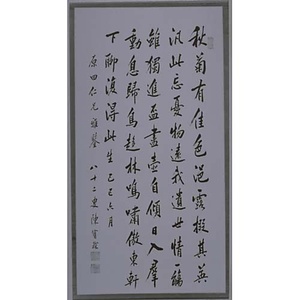 秋菊有佳色浥露掇其英
汎此忘憂物遠我遺世情一觴
雖獨進盃盡壺自傾日入羣
動息歸鳥趨林鳴嘯傲東軒
下聊復得此生 己巳六月
原田仁兄雅鑒 八十二叟陳寶琛